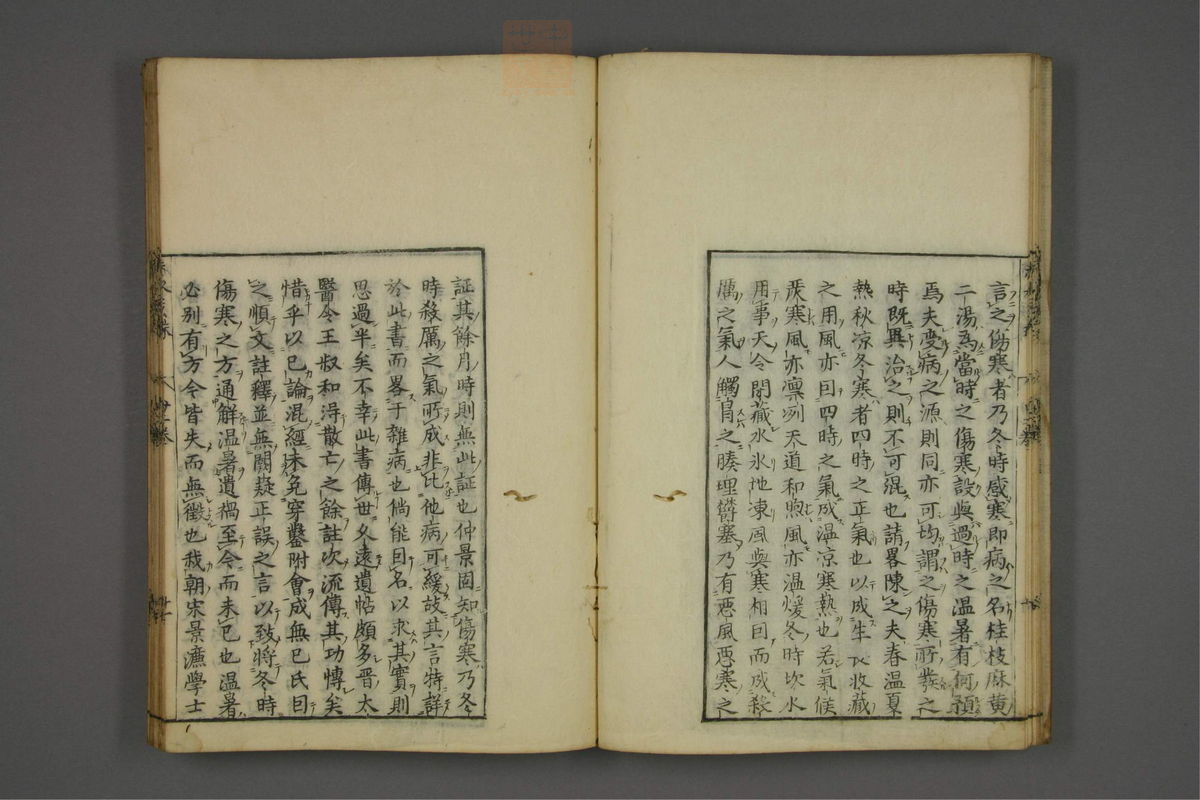 言之傷寒者乃冬時感寒即病之名桂枝麻黄
二湯爲當時之傷寒設與過時之温暑有何預
焉夫受病之源則同亦可均謂之傷寒所發之
時既異治之則不可混也請畧陳之夫春温夏
熱秋凉冬寒者四時之正氣也以成生 收藏
之用風亦因四時之氣成温凉寒熱也若氣候
嚴寒風亦凛冽天道和煦風亦温煖冬時坎水
用事天令閉藏水氷地凍風與寒相因而成殺
厲之氣人觸冐之腠理欝塞乃有悪風悪寒之
証其餘月時則無此証也仲景固知傷寒乃冬
時殺厲之氣所成非比他病可緩故其言特詳
於此書而畧于雜病也倘能因名以求其實則
思過半矣不幸此書傳世久遠遺帖頗多晋太
醫令王叔和淂散亡之餘註次流傳其功慱矣
惜乎以已論混經未免穿鑿附會成無已氏因
之順文註釋並無闕疑正誤之言以致將冬時
傷寒之方通解温暑遺禍至今而未已也温暑
必別有方今皆失而無徴也我朝宋景濂學士